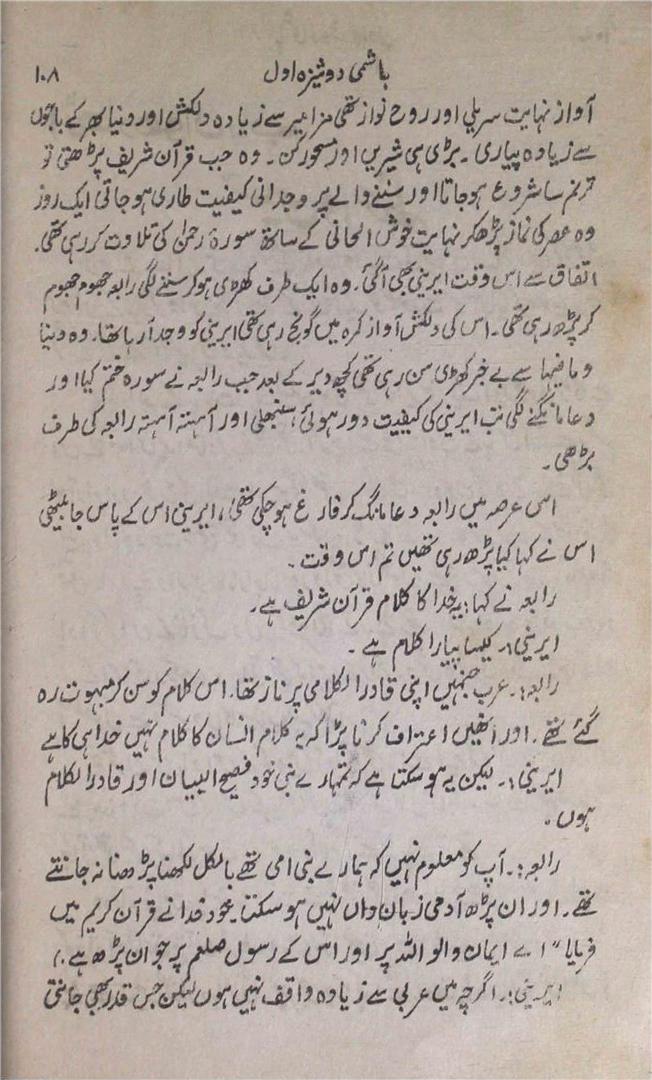 ۱۰۸ ہاشمی دوشیزہ اول
آواز نہایت سریلی اور روح نواز تھی مزامیر سے زیادہ دلکش اور دنیا بھر کے باجوں
سے زیادہ پیاری ۔ بڑی ہی شیریں اور مسحور کن ۔ وہ جب قرآن شریف پڑھتی تو
ترنم سا شروع ہو جاتا اور سننے والے پر وجدانی کیفیت طاری ہو جاتی ایک روز
وہ عصر کی نماز پڑھکر نہایت خوش الحانی کے ساتھ سورۃ رحمٰن کی تلاوت کر رہی تھی ۔
اتفاق سے اس وقت ایرینی بھی آگئی ۔ وہ ایک طرف کھڑی ہو کر سننے لگی رابعہ جھوم جھوم
کر پڑھ رہی تھی ۔ اس کی دلکش آواز کمرہ میں گونج رہی تھی ایرینی کو وجد آ رہا تھا ۔ وہ دنیا
و مافیہا سے بے خبر کھڑی سن رہی تھی کچھ دیر کے بعد جب رابعہ نے سورہ ختم کیا اور
دعا مانگنے لگی تب ایرینی کی کیفیت دور ہوئی سنبھلی اور آہستہ آہستہ رابعہ کی طرف
بڑھی ۔
اسی عرصہ میں رابعہ دعا مانگ کر فارغ ہو چکی تھی ، ایرینی اس کے پاس جا بیٹھی
اس نے کہا کیا پڑھ رہی تھیں تم اس وقت ۔
رابعہ نے کہا : یہ خدا کا کلام قرآن شریف ہے ۔
ایرینی :۔ کیسا پیارا کلام ہے ۔
رابعہ :۔ عرب جنہیں اپنی قادر الکلامی پر ناز تھا ۔ اس کلام کو سن کر مبہوت رہ
گئے تھے ۔ اور انھیں اعتراف کرنا پڑا کہ یہ کلام انسان کا کلام نہیں خدا ہی کا ہے
ایرینی :۔ لیکن یہ ہو سکتا ہے کہ تمہارے نبی خود فصیح البیان اور قادر الکلام
ہوں ۔
رابعہ :۔ آپ کو معلوم نہیں کہ ہمارے نبی امی تھے بالکل لکھنا پڑھنا نہ جانتے
تھے ۔ اور ان پڑھ آدمی زبان داں نہیں ہو سکتا ۔ خود خدا نے قرآن کریم میں
فرمایا " اے ایمان والو اللہ پر اور اس کے رسول صلعم پر جو ان پڑھ ہے ۔ )
ایرینی :۔ اگرچہ میں عربی سے زیادہ واقف نہیں ہوں لیکن جس قدر بھی جانتی